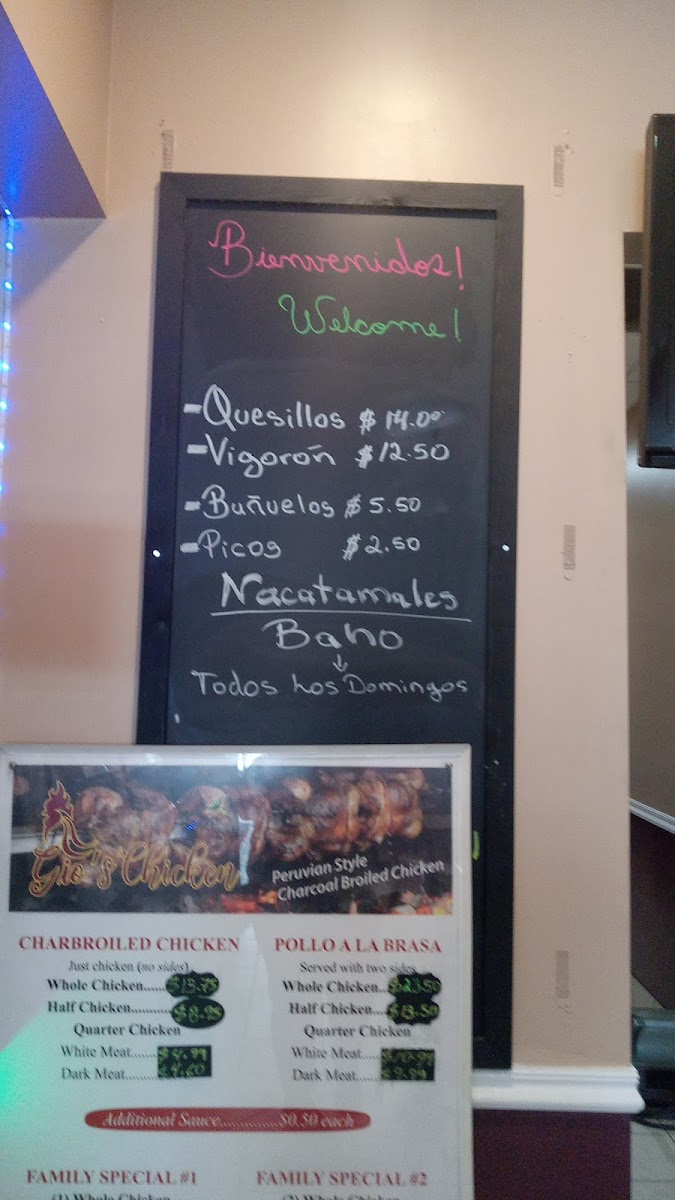 Bienvenidos!
Welcome!
-Quesillos $ 14.00
-Vigorón $12.50
-Buñuelos $ 5.50
-Picos $2.50
Nacatamales
Baho
↓
Todos Los Domingos
Gio's Chicken
Peruvian Style
Charcoal Broiled Chicken
CHARBROILED CHICKEN
Just chicken (no sides)
Whole Chicken......$13.75
Half Chicken...........$8.25
Quarter Chicken
White Meat.......$4.99
Dark Meat.......
Additional Sauce...............$0.50 each
POLLO A LA BRASA
Served with two sides
Whole Chicken...$23.50
Half Chicken....$13.50
Quarter Chicken
White Meat.....
Dark Meat.......$9.99
FAMILY SPECIAL #1
(1) Whole Chicken
FAMILY SPECIAL #2
(2) Whole Chicken